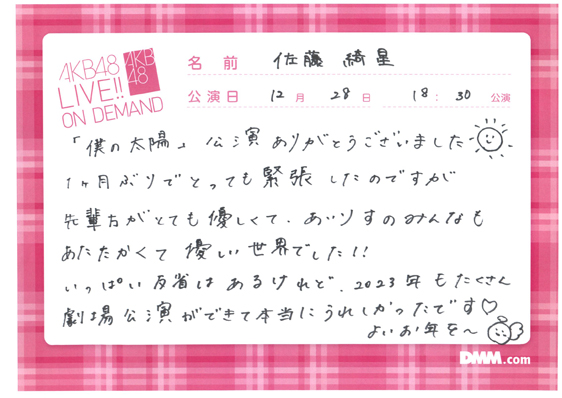 AKB48
LIVE!!
ON DEMAND
AKB
48
名前 佐藤 綺星
公演日 12月 28日 18:30 公演
「僕の太陽」公演ありがとうございました
1ヶ月ぶりでとっても緊張したのですが
先輩方がとても優しくて、あいりすのみんなも
あたたかくて優しい世界でした!!
いっぱい反省はあるけれど、2023年もたくさん
劇場公演ができて本当にうれしかったです♡
よいお年を〜
DMM.com